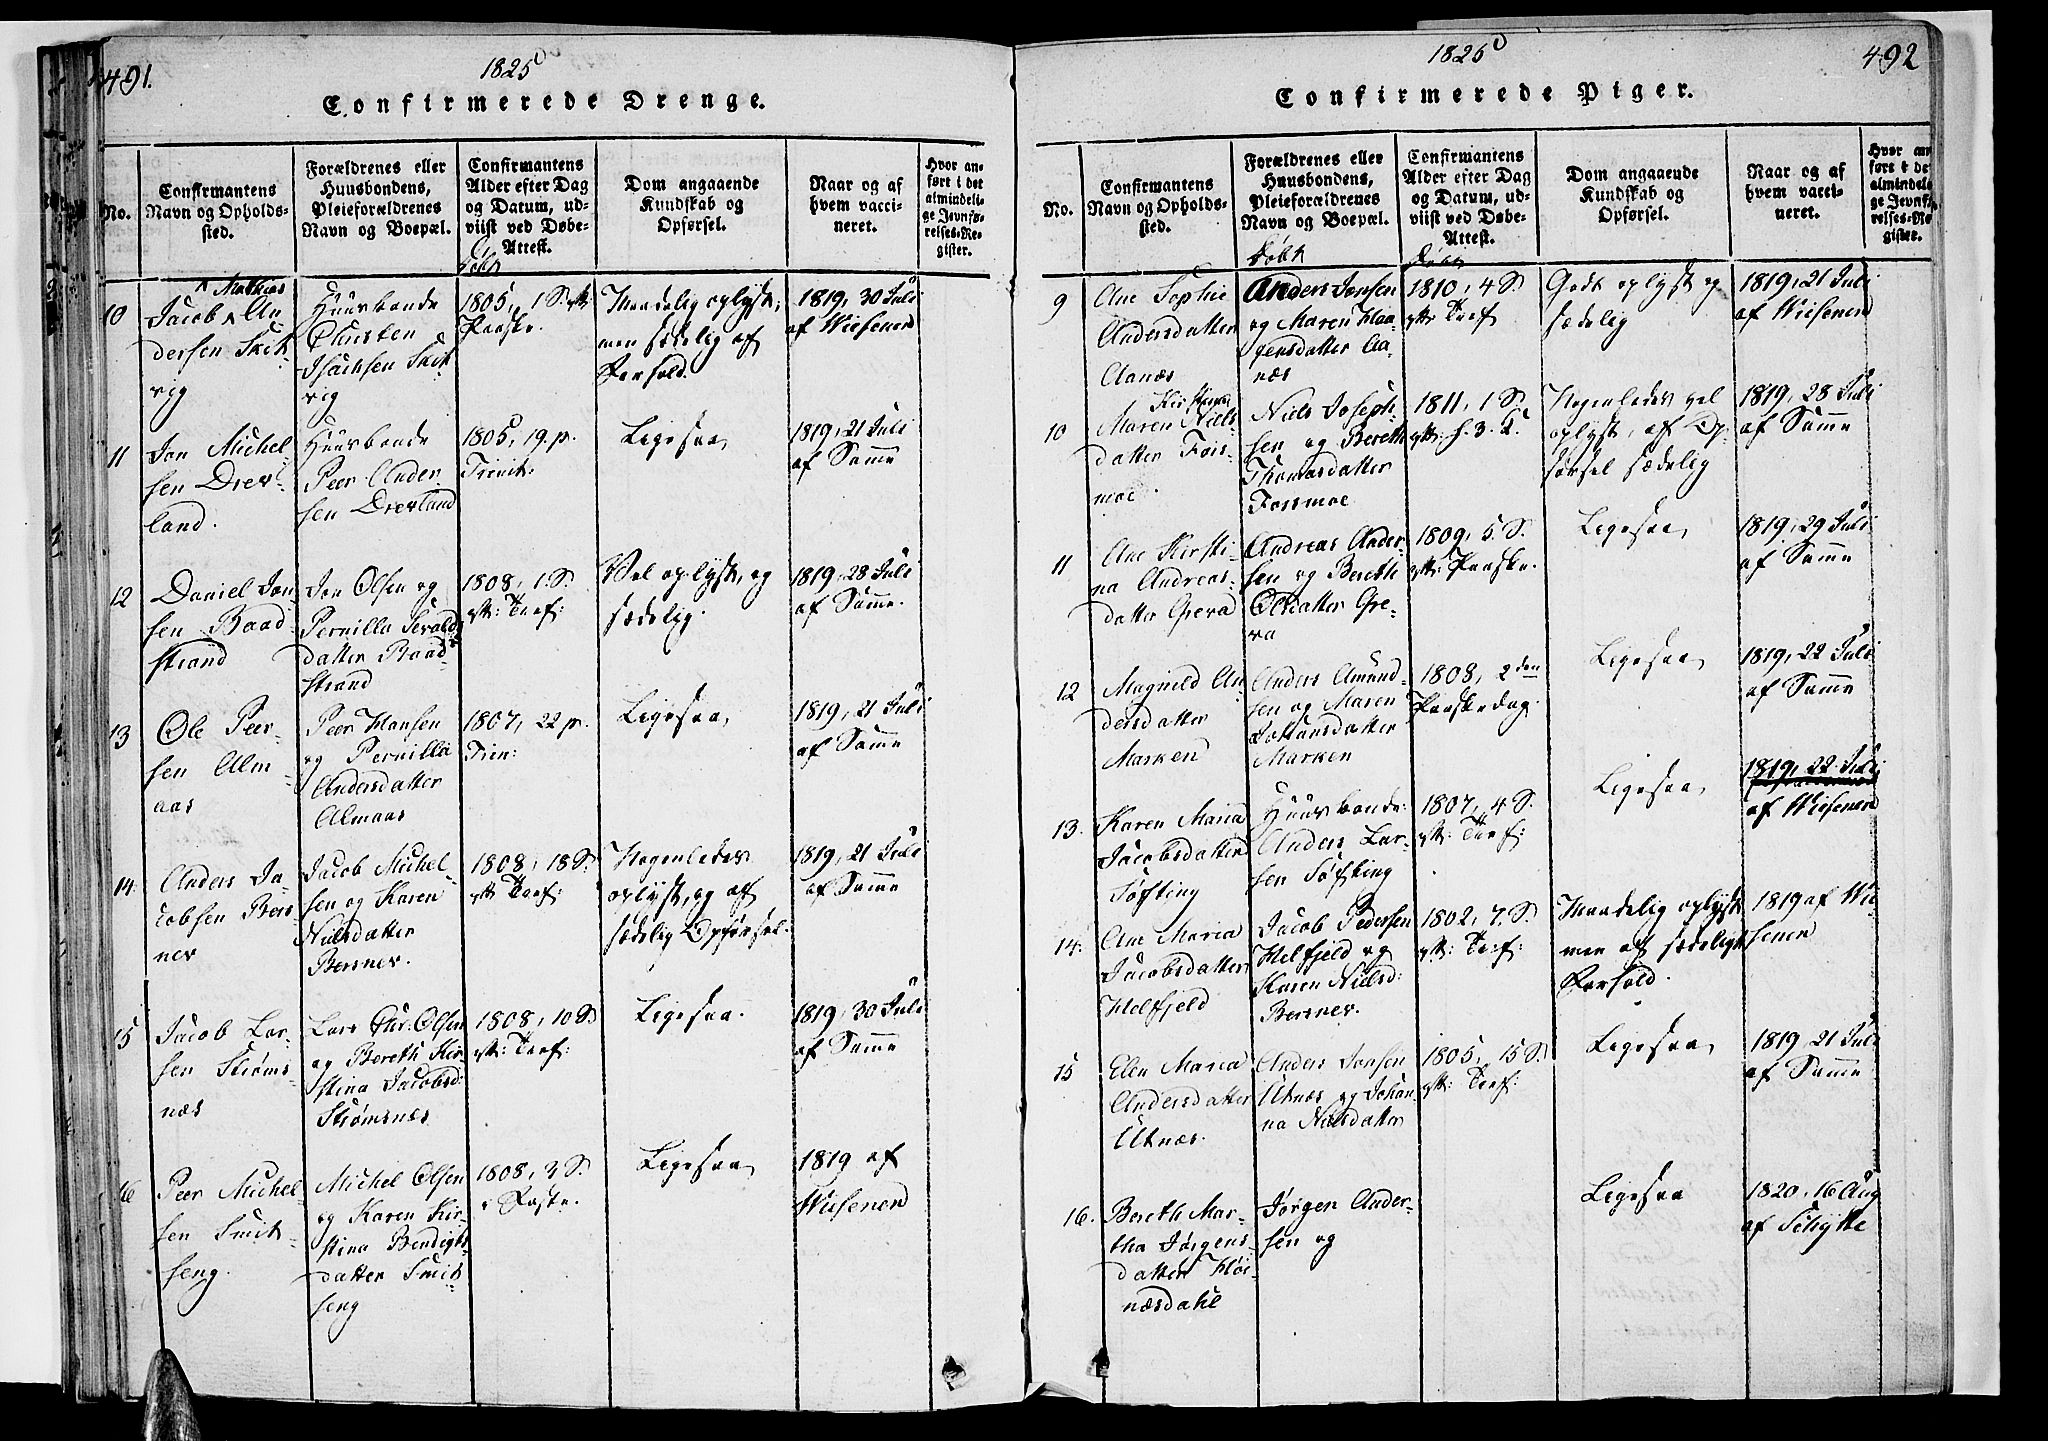 491.
1825
Confirmerede Drenge.
No.
Confirmantens
Navn og Opholds-
sted.
Forældrenes eller
Huusbondens,
Pleieforældrenes
Navn og Boepæl.
Confirmantens
Alder efter Dag
og Datum, ud-
viist ved Døbe-
Attest.
Døbt
Dom angaaende
Kundskab og
Opførsel.
Naar og af
hvem vacci-
neret.
Hvor an-
ført i det
almindeli-
ge Jevnfø-
relses-Re-
gister.
10
Mathias
Jacob ^ An
dersen Skit-
vig
Huusbonde
Christen
Isachsen Skit
vig
1805, 1 S. eft:
Paaske.
Maadelig oplyst,
men sædelig af
Forhold.
1819, 30 Juli
af Wiesener
11
Jon Michel
sen Drev-
land.
Huusbonde
Peer Ander-
sen Drevland
1805, 19 p.
Trinit:
Ligesaa,
1819, 21 Juli
af Samme
12
Daniel Jon
sen Baad-
strand
Jon Olsen og
Pernilla Sivalds
datter Baad-
strand
1808, 1 S.
eft: Tref:
Vel oplyst, og
sædelig.
1819, 28 Juli
af Samme.
13
Ole Peer-
sen Alm-
aas
Peer Hansen
og Pernilla
Andersdatter
Almaas
1807, 22 p.
Trin:
Ligesaa,
1819, 21 Juli
af Samme
14.
Anders Ja-
cobsen Bers-
ner
Jacob Michel-
sen og Karen
Nielsdatter
Bersner.
1808, 18 S.
eft Tref:
Nogenledes
oplyst, og af
sædelig Opførsel.
1819, 21 Juli
af Samme
15
Jacob Lar-
sen Strøms-
næs
Lars Chr. Olsen
og Bereth Kir-
stina Jacobsd:
Strømsnæs
1808, 10 S.
eft: Tref:
Ligesaa.
1819, 30 Juli
af Samme
16
Peer Michel-
sen Smit-
seng.
Michel Olsen
og Karen Kir-
stina Bendigts-
datter Smit
seng
1808, 3 S.
i Faste.
Ligesaa,
1819 af
Wiesener
1825
492
Confirmerede Piger.
No.
Confirmantens
Navn og Opholds-
sted.
Forældrenes eller
Huusbondens,
Pleieforældrenes
Navn og Boepæl.
Døbt
Confirmantens
Alder efter Dag
og Datum, ud-
viist ved Døbe-
Attest.
Døbt
Dom angaaende
Kundskab og
Opførsel.
Naar og af
hvem vacci-
neret.
Hvor an-
ført i de
almindeli
ge Jevnfø
relses-Re
gister.
9
Ane Sophie
Andersdatter
Aanæs
Anders Jonsen
og Maren Haa-
gensdatter Aa-
næs
1810, 4 S.
eft: Tref
Godt oplyst og
sædelig
1819, 21 Juli
af Wiesener
10
Kirstina
Maren Niels
datter Fors-
moe.
Niels Joseph-
sen og Bereth
Thomasdatter
Forsmoe
1811, 1 S.
eft: h. 3. K.
Nogenledes vel
oplyst, af Op-
førsel sædelig
1819, 28 Juli
af Samme
11
Ane Kirsti-
na Andreas-
datter Grova
Andreas Ander-
sen og Bereth
Olsdatter Gre-
va
1809, 5. S.
eft: Paaske.
Ligesaa,
1819, 29 Juli
af Samme
12
Magnild An-
dersdatter
Marken
Anders Amund-
sen og Maren
Johansdatter
Marken
1808, 2den
Paaskedag.
Ligesaa,
1819, 22 Juli
af Samme
13.
Karen Maria
Jacobsdatter
Søfting
Huusbonde:
Anders Lar-
sen Søfting
1807, 4 S.
eft: Tref:
Ligesaa,
1819, 22 Juli
af Wiesener
14.
Ane Maria
Jacobsdatter
Helfjeld
Jacob Pedersen
Helfjeld og
Karen Nielsd:
Bersner.
1802, 7. S.
eft: Tref:
Maadelig oplyst
men af sædeligt
Forhold.
1819 af Wie
sener
15
Elen Maria
Andersdatter
Utnæs.
Anders Jonsen
Utnæs og Johan-
na Nielsdatter
1805, 15 S.
eft: Tref:
Ligesaa,
1819, 21 Juli
af Samme
16.
Bereth Mar-
tha Jørgens-
datter Høi-
næsdahl
Jørgen Ander-
sen og
Ligesaa
1820, 16 Aug
af Schytte